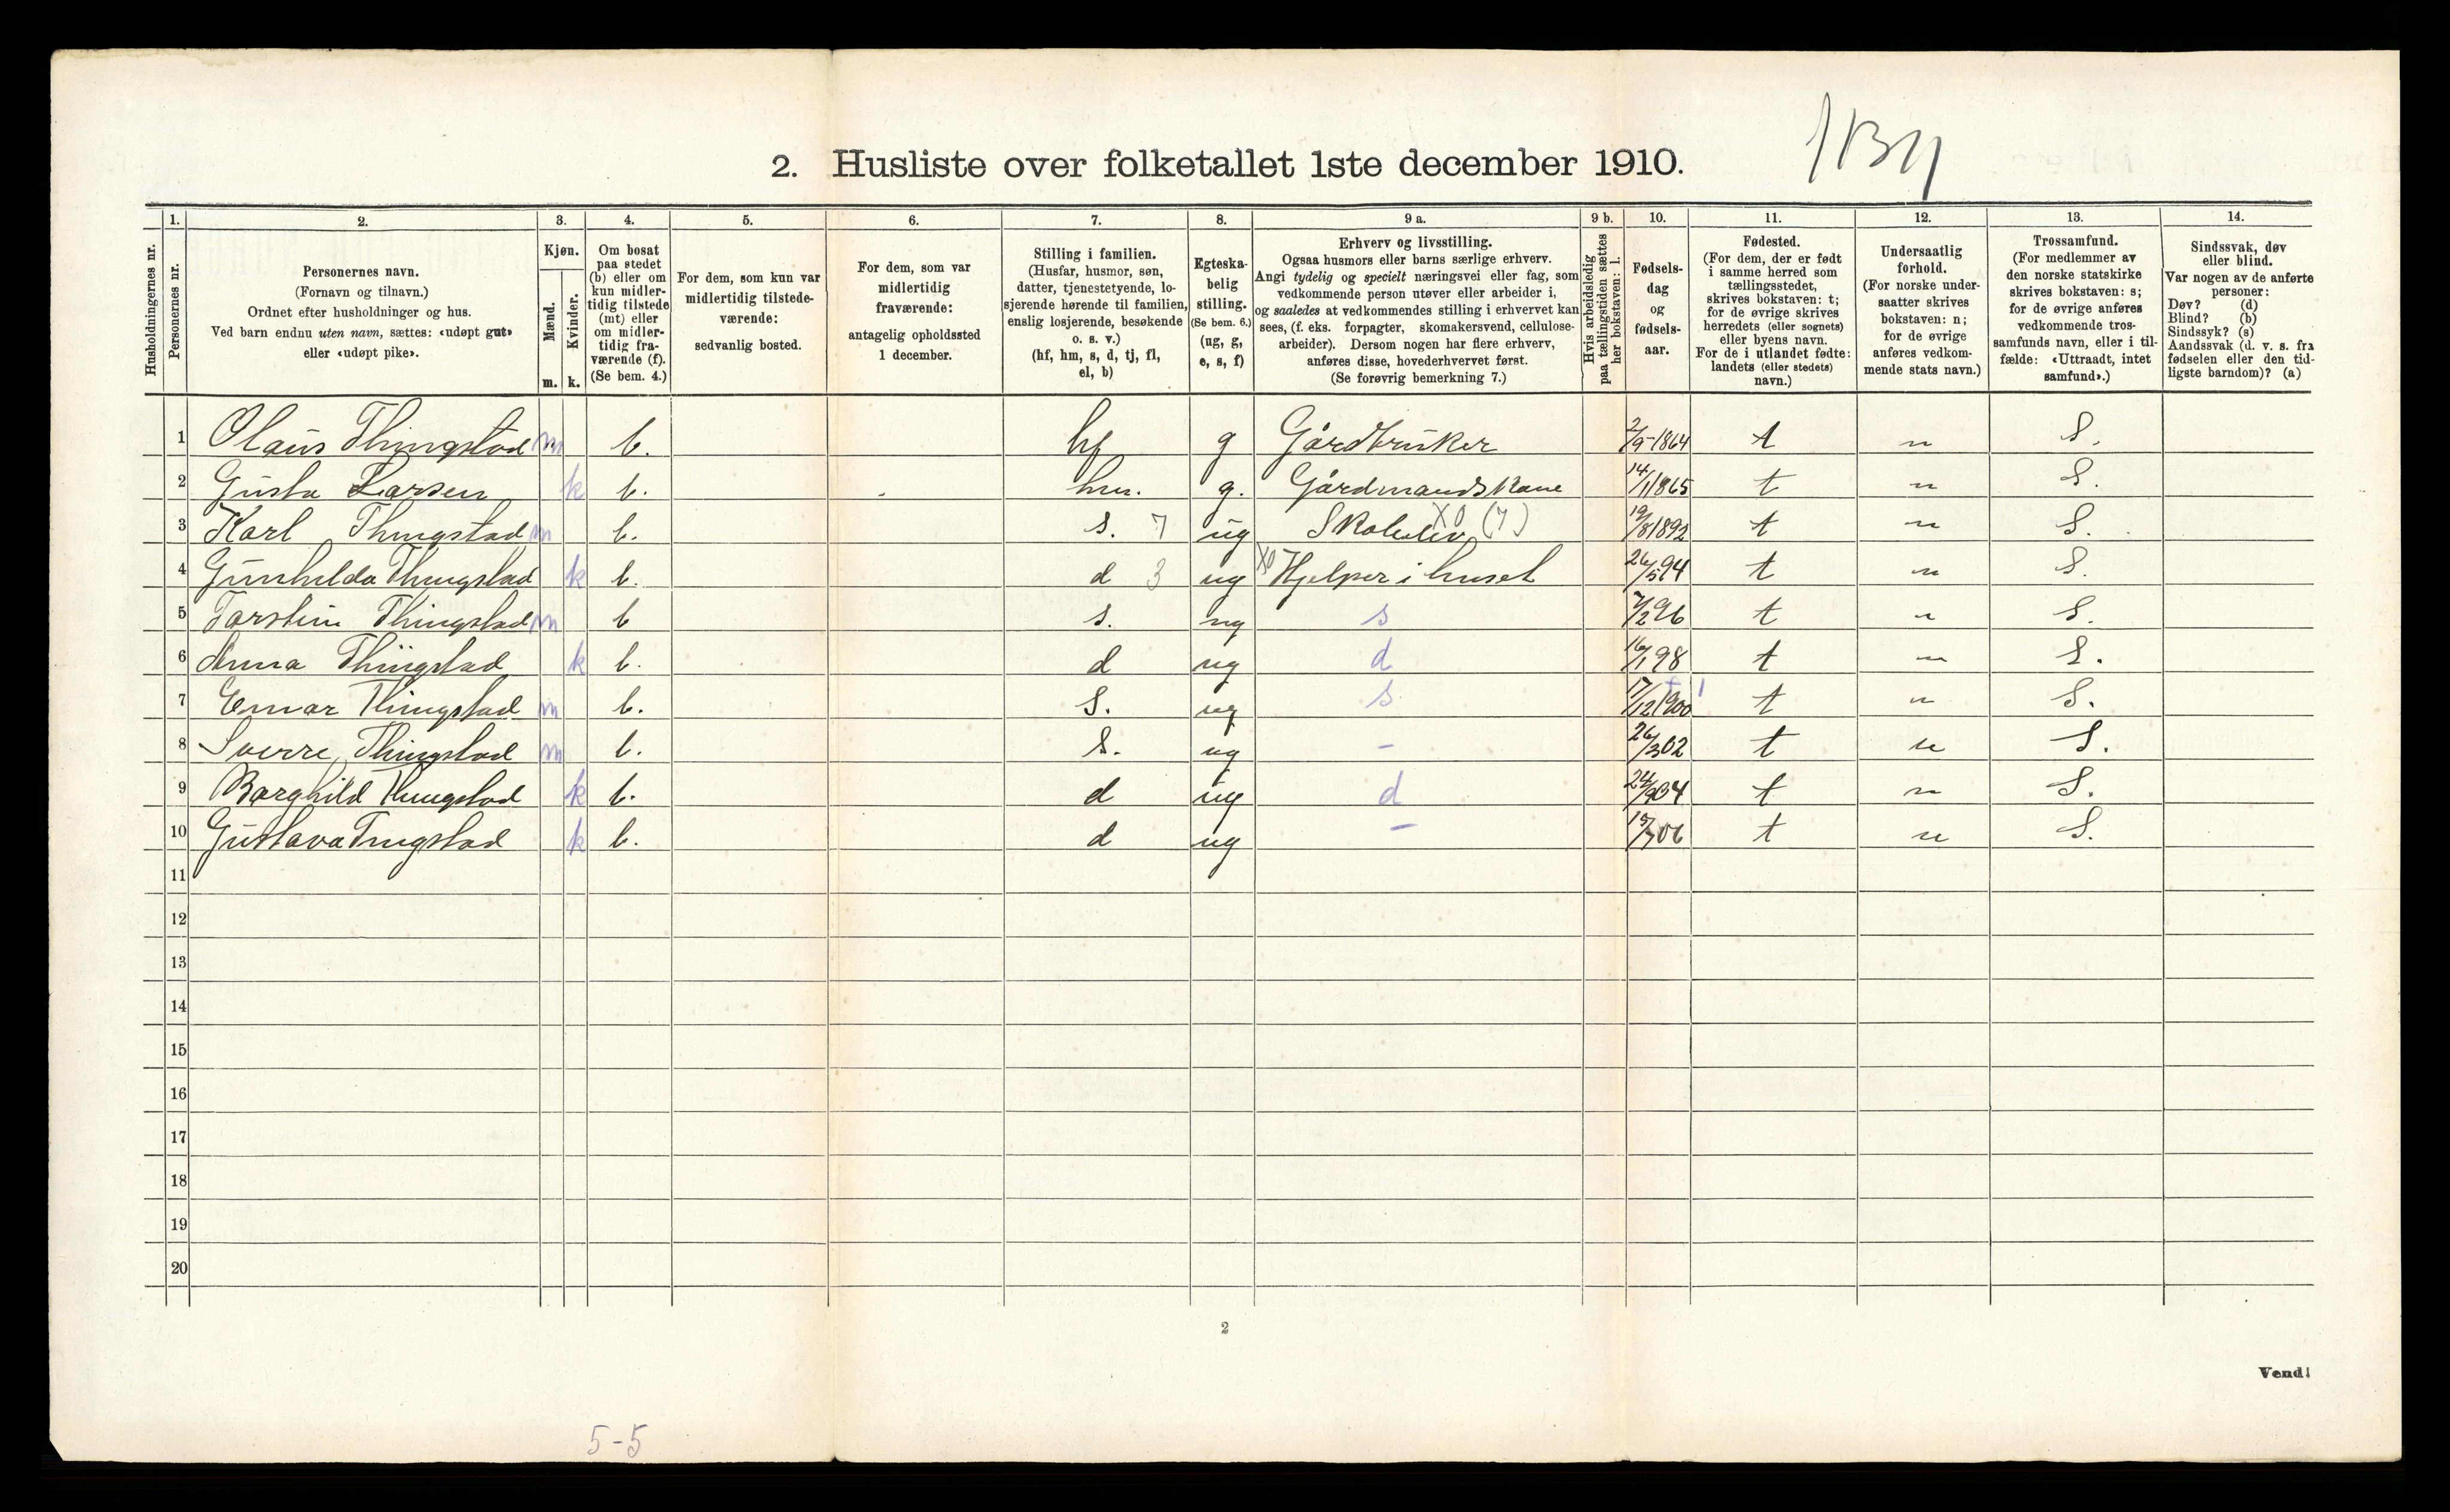 1 B 4
2. Husliste over folketallet 1ste december 1910.
Husholdningernes nr.
1. Personernes nr.
2. Personernes navn. (Fornavn og tilnavn.) Ordnet efter husholdninger og hus. Ved barn endnu uten navn, sættes: «udøpt gut» eller «udøpt pike».
3. Kjøn. Mænd. m. Kvinder. k.
4. Om bosat paa stedet (b) eller om kun midlertidig tilstede (mt) eller om midlertidig fraværende (f). (Se bem. 4.)
5. For dem, som kun var midlertidig tilstedeværende: sedvanlig bosted.
6. For dem, som var midlertidig fraværende: antagelig opholdssted 1 december.
7. Stilling i familien. (Husfar, husmor, søn, datter, tjenestetyende, losjerende hørende til familien, enslig losjerende, besøkende o. s. v.) (hf, hm, s, d, tj, fl, el, b)
8. Egteskabelig stilling. (Se bem. 6.) (ug, g, e, s, f)
9 a. Erhverv og livsstilling. Ogsaa husmors eller barns særlige erhverv. Angi tydelig og specielt næringsvei eller fag, som vedkommende person utøver eller arbeider i, og saaledes at vedkommendes stilling i erhvervet kan sees, (f. eks. forpagter, skomakersvend, cellulosearbeider). Dersom nogen har flere erhverv, anføres disse, hovederhvervet først. (Se forøvrig bemerkning 7.)
9 b. Hvis arbeidsledig paa tællingstiden sættes her bokstaven: l.
10. Fødselsdag og fødselsaar.
11. Fødested. (For dem, der er født i samme herred som tællingsstedet, skrives bokstaven: t; for de øvrige skrives herredets (eller sognets) eller byens navn. For de i utlandet fødte: landets (eller stedets) navn.)
12. Undersaatlig forhold. (For norske undersaatter skrives bokstaven: n; for de øvrige anføres vedkommende stats navn.)
13. Trossamfund. (For medlemmer av den norske statskirke skrives bokstaven: s; for de øvrige anføres vedkommende trossamfunds navn, eller i tilfælde: «Uttraadt, intet samfund».)
14. Sindssvak, døv eller blind. Var nogen av de anførte personer: Døv? (d) Blind? (b) Sindssyk? (s) Aandssvak (d. v. s. fra fødselen eller den tidligste barndom)? (a)
1 Olaus Thingstad m b. hf g Gårdbruker 2/9-1864 t n S.
2 Gusta Larsen k b. hm. g. Gårdmandskone 14/11865 t n S.
3 Karl Thingstad m b. s. 7 ug Skoleelev X0 (7) 19/81892 t n S.
4 Gunhilda Thingstad k b. d 3 ug X0 Hjelper i huset 26/594 t n S.
5 Torstein Thingstad m b s. ug s 7/296 t n S.
6 Anna Thingstad k b. d ug d 16/198 t n S.
7 Einar Thingstad m b. S. ug s 17/121900 t n S.
8 Sverre Thingstad m b. S. ug - 26/302 t n S.
9 Borghild Thingstad k b. d ug d 24/904 t n S.
10 Gustava Tingstad k b. d ug - 15/706 t n S.
11
12
13
14
15
16
17
18
19
20
2
Vend!
5-5